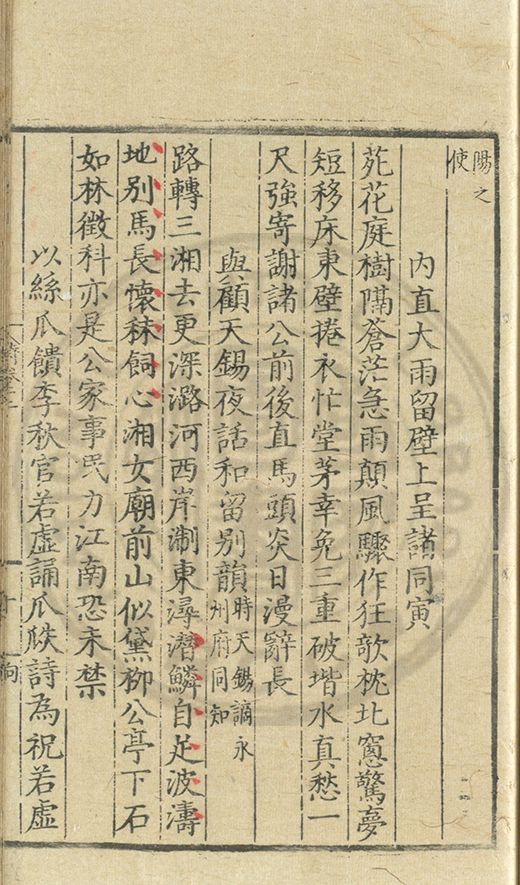 陽之
使
内直大雨留壁上呈諸同寅
苑花庭樹隔蒼茫急雨顛風驟作狂欹枕北窓驚夢
短移床東壁捲衣忙堂茅幸免三重破堦水真愁一
尺強寄謝諸公前後直馬頭炎日漫辭長
與顧天錫夜話和留别韻時天錫謫永
州府同知
路轉三湘去更深潞河西岸制東潯潜鱗自足波濤
地别馬長懷秣飼心湘女廟前山似黛柳公亭下石
如林徵科亦是公家事民力江南恐未禁
以絲瓜饋李秋官若虛誦瓜瓞詩為祝若虛